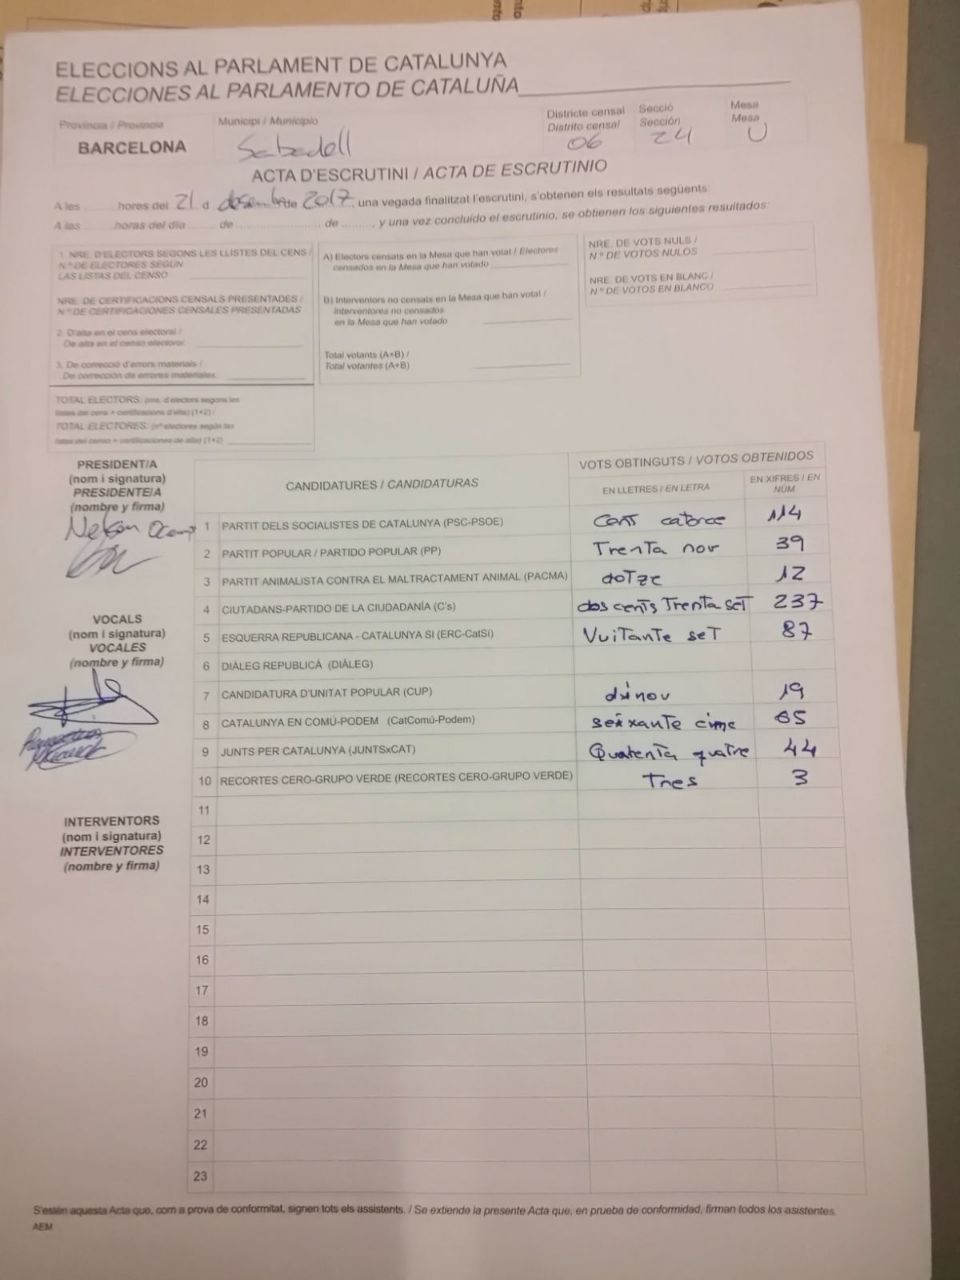 ELECCIONS AL PARLAMENT DE CATALUNYA
ELECCIONES AL PARLAMENTO DE CATALUÑA
Província / Provincia
BARCELONA
Municipi / Municipio
Sabadell
Districte censal
Distrito censal
06
Secció
Sección
24
Mesa
Mesa
U
ACTA D'ESCRUTINI / ACTA DE ESCRUTINIO
A les ........ hores del 21 d desembre de 2017, una vegada finalitzat l'escrutini, s'obtenen els resultats següents:
A las ........ horas del día ........ de ........ de ........, y una vez concluido el escrutinio, se obtienen los siguientes resultados:
1. NRE. D'ELECTORS SEGONS LES LLISTES DEL CENS /
N.º DE ELECTORES SEGÚN
LAS LISTAS DEL CENSO
NRE. DE CERTIFICACIONS CENSALS PRESENTADES /
N.º DE CERTIFICACIONES CENSALES PRESENTADAS
2. D'alta en el cens electoral /
De alta en el censo electoral
3. De correcció d'errors materials /
De corrección de errores materiales
TOTAL ELECTORS: (nre. d'electors segons les
llistes del cens + certificacions d'alta) (1+2) /
TOTAL ELECTORES: (nº electores según las
listas del censo + certificaciones de alta) (1+2)
A) Electors censats en la Mesa que han votat / Electores
censados en la Mesa que han votado
B) Interventors no censats en la Mesa que han votat /
Interventores no censados
en la Mesa que han votado
Total votants (A+B) /
Total votantes (A+B)
NRE. DE VOTS NULS /
N.º DE VOTOS NULOS
NRE. DE VOTS EN BLANC /
N.º DE VOTOS EN BLANCO
PRESIDENT/A
(nom i signatura)
PRESIDENTE/A
(nombre y firma)
Nelson
VOCALS
(nom i signatura)
VOCALES
(nombre y firma)
INTERVENTORS
(nom i signatura)
INTERVENTORES
(nombre y firma)
CANDIDATURES / CANDIDATURAS
VOTS OBTINGUTS / VOTOS OBTENIDOS
EN LLETRES / EN LETRA
EN XIFRES / EN NÚM.
1 PARTIT DELS SOCIALISTES DE CATALUNYA (PSC-PSOE) cent catorce 114
2 PARTIT POPULAR / PARTIDO POPULAR (PP) Trenta nou 39
3 PARTIT ANIMALISTA CONTRA EL MALTRACTAMENT ANIMAL (PACMA) dotze 12
4 CIUTADANS-PARTIDO DE LA CIUDADANÍA (C's) dos cents Trenta set 237
5 ESQUERRA REPUBLICANA - CATALUNYA SÍ (ERC-CatSí) Vuitante set 87
6 DIÀLEG REPUBLICÀ (DIÀLEG)
7 CANDIDATURA D'UNITAT POPULAR (CUP) dinou 19
8 CATALUNYA EN COMÚ-PODEM (CatComú-Podem) seixante cinc 65
9 JUNTS PER CATALUNYA (JUNTSxCAT) Quatenta quatre 44
10 RECORTES CERO-GRUPO VERDE (RECORTES CERO-GRUPO VERDE) Tres 3
11
12
13
14
15
16
17
18
19
20
21
22
23
S'estén aquesta Acta que, com a prova de conformitat, signen tots els assistents. / Se extiende la presente Acta que, en prueba de conformidad, firman todos los asistentes.
AEM